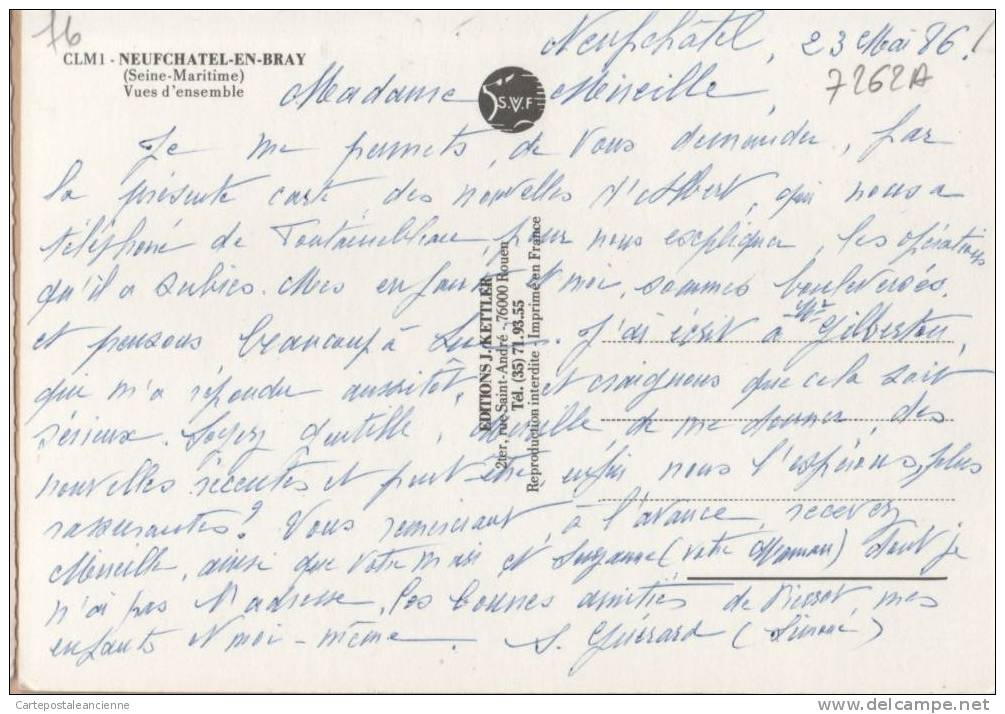 76
CLM1 - NEUFCHATEL-EN-BRAY
(Seine-Maritime)
Vues d'ensemble
S.V.F
Neufchâtel, 23 Mai 86!
7262A
Madame Mireille,
Je me permets, de vous demander, par
la présente carte des nouvelles d'Albert, qui nous a
téléphoné de Fontainebleau pour nous expliquer, les opérations
qu'il a subies. Mes enfants et moi, sommes bouleversés,
et pensons beaucoup à . J'ai écrit à Mr Gilberton,
qui m'a répondu aussitôt, et craignons que cela soit
sérieux. Soyez gentille, Mireille de me donner, des
nouvelles récentes et peut-être enfin nous l'espérons, plus
rassurantes? Vous remerciant, à l'avance, recevez
Mireille, ainsi que votre mari et Suzanne (votre Maman) dont je
n'ai pas l'adresse, les bonnes amitiés de , mes
enfants et moi-même. S. Guérard (Simone)
EDITIONS J. KETTLER
2ter, rue Saint-André - 76000 Rouen
Tél. (35) 71.93.55
Reproduction interdite - Imprimé en France
Cartepostaleancienne
www.delcampe.net